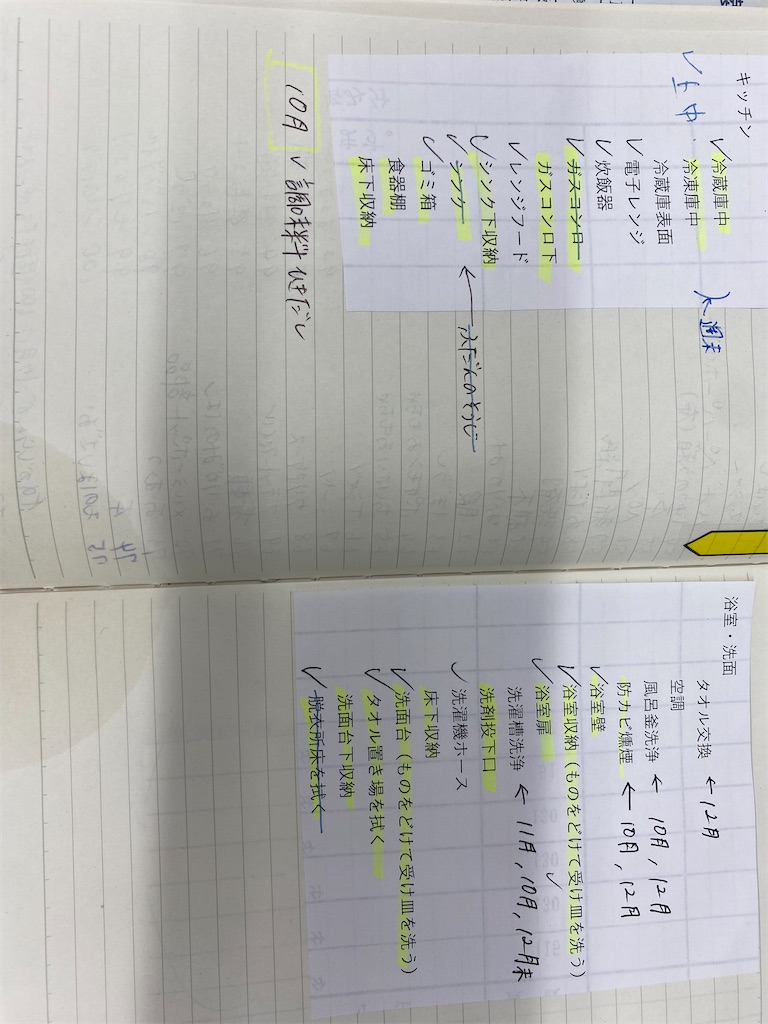 キッチン
✓上中
✓冷蔵庫中
冷凍庫中
週末
冷蔵庫表面
✓電子レンジ
✓炊飯器
✓ガスコンロ
ガスコンロ下
✓レンジフード
✓シンク下収納
✓シンク ← ふだんのそうじ
✓ゴミ箱
食器棚
床下収納
10月 ✓調味料ひきだし
浴室・洗面
タオル交換 ← 12月
空調
風呂釜洗浄 ← 10月, 12月
防カビ燻煙 ← 10月, 12月
✓浴室壁
✓浴室収納（ものをどけて受け皿を洗う）
✓浴室扉 ✓
洗濯槽洗浄 ← 11月, 10月, 12月末
洗剤投下口
✓洗濯機ホース
床下収納
✓洗面台（ものをどけて受け皿を洗う）
✓タオル置き場を拭く
洗面台下収納
✓脱衣所床を拭く